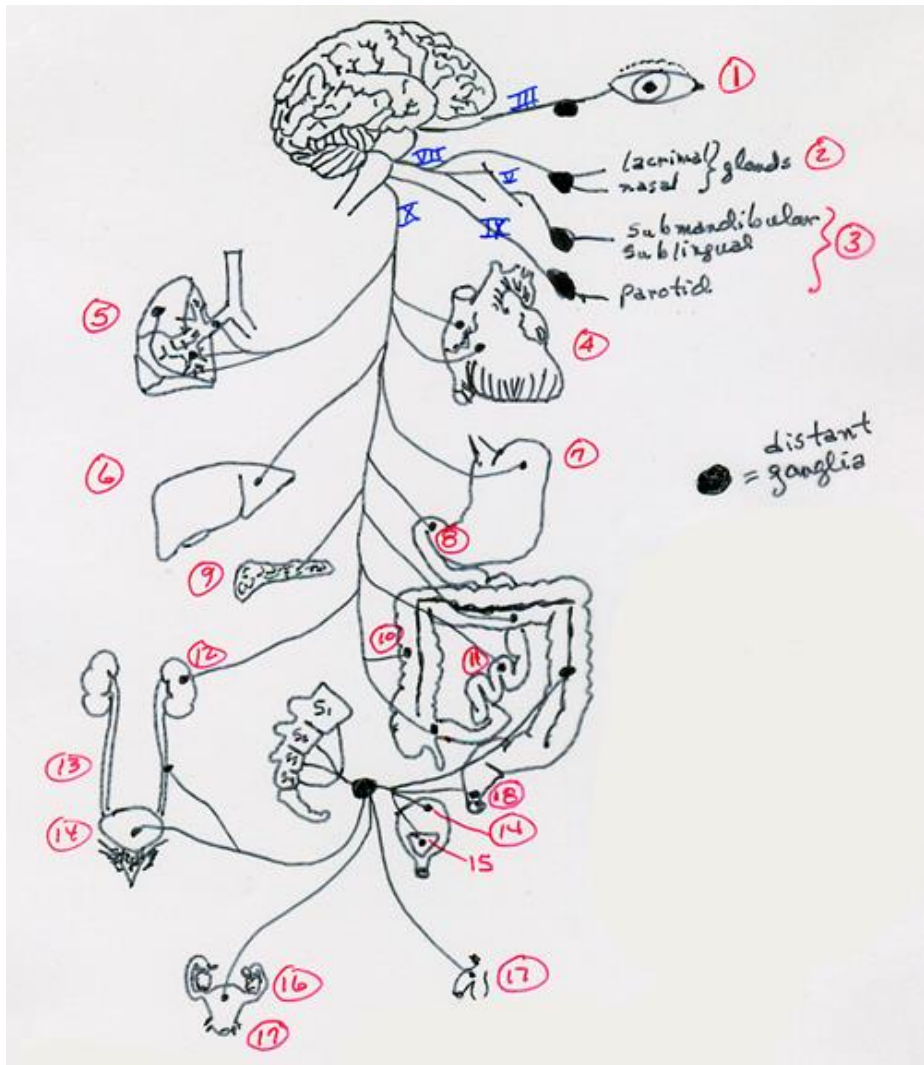 1
III
VII
lacrimal
nasal
glands
2
V
X
IX
submandibular
sublingual
3
parotid
5
4
distant
= ganglia
6
7
8
9
10
11
12
S1
S2
S3
S4
13
18
14
14
15
16
17
17